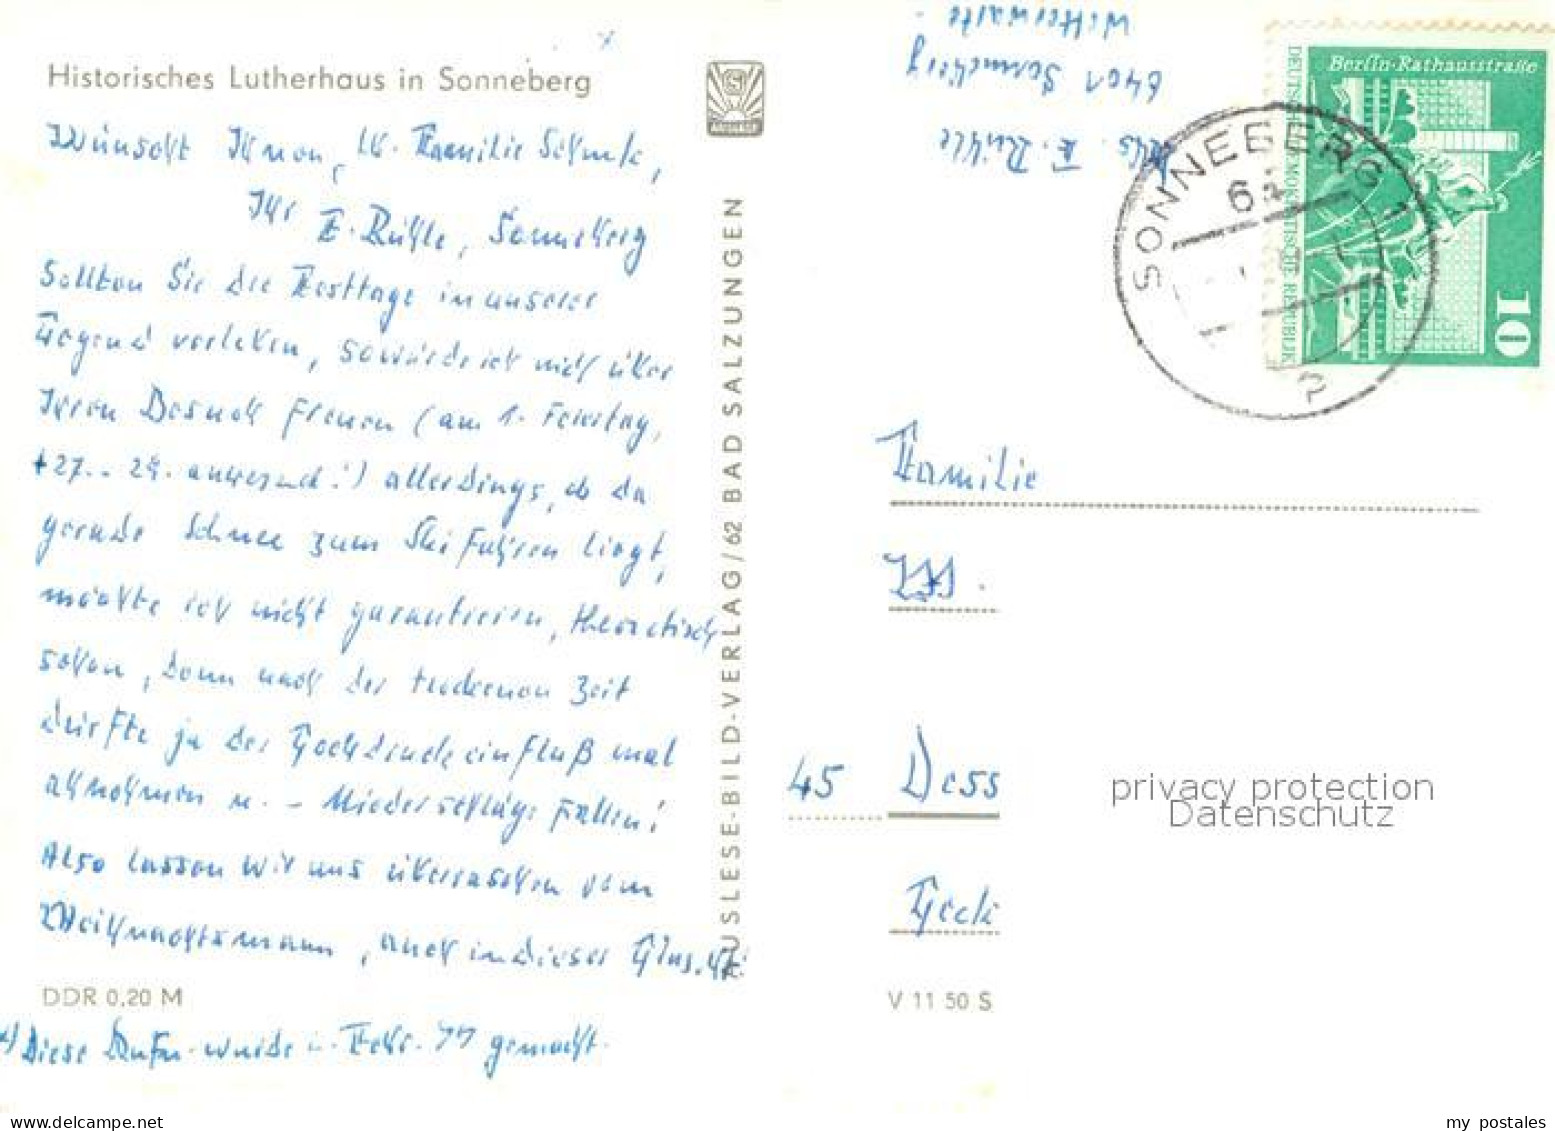 Historisches Lutherhaus in Sonneberg
Wünscht Ihnen, lb. Familie
Ihr E. Rühle, Sonneberg
Sollten Sie die Festtage in unserer
Gegend verleben, so würde ich mich über
Ihren Besuch freuen (am 1. Feiertag,
+ 27. - 29. anwesend!) allerdings, ob da
gerade Schnee zum Skifahren liegt,
möchte ich nicht garantieren, theoretisch
schon, denn nach der trockenen Zeit
dürfte ja der Hochdruckeinfluß mal
abnehmen u. - Niederschläge fallen!
Also lassen wir uns überraschen vom
Weihnachtsmann, auch in dieser
DDR 0,20 M
x) Diese Aufn. wurde i. Febr. 77 gemacht.
AUSLESE-BILD-VERLAG/62 BAD SALZUNGEN
Abs. E. Rühle
6401 Sonneberg
SONNEBERG 1
Berlin-Rathausstraße
DEUTSCHE DEMOKRATISCHE REPUBLIK
10
Familie
45 Dess
V 11 50 S
privacy protection
Datenschutz
my postales